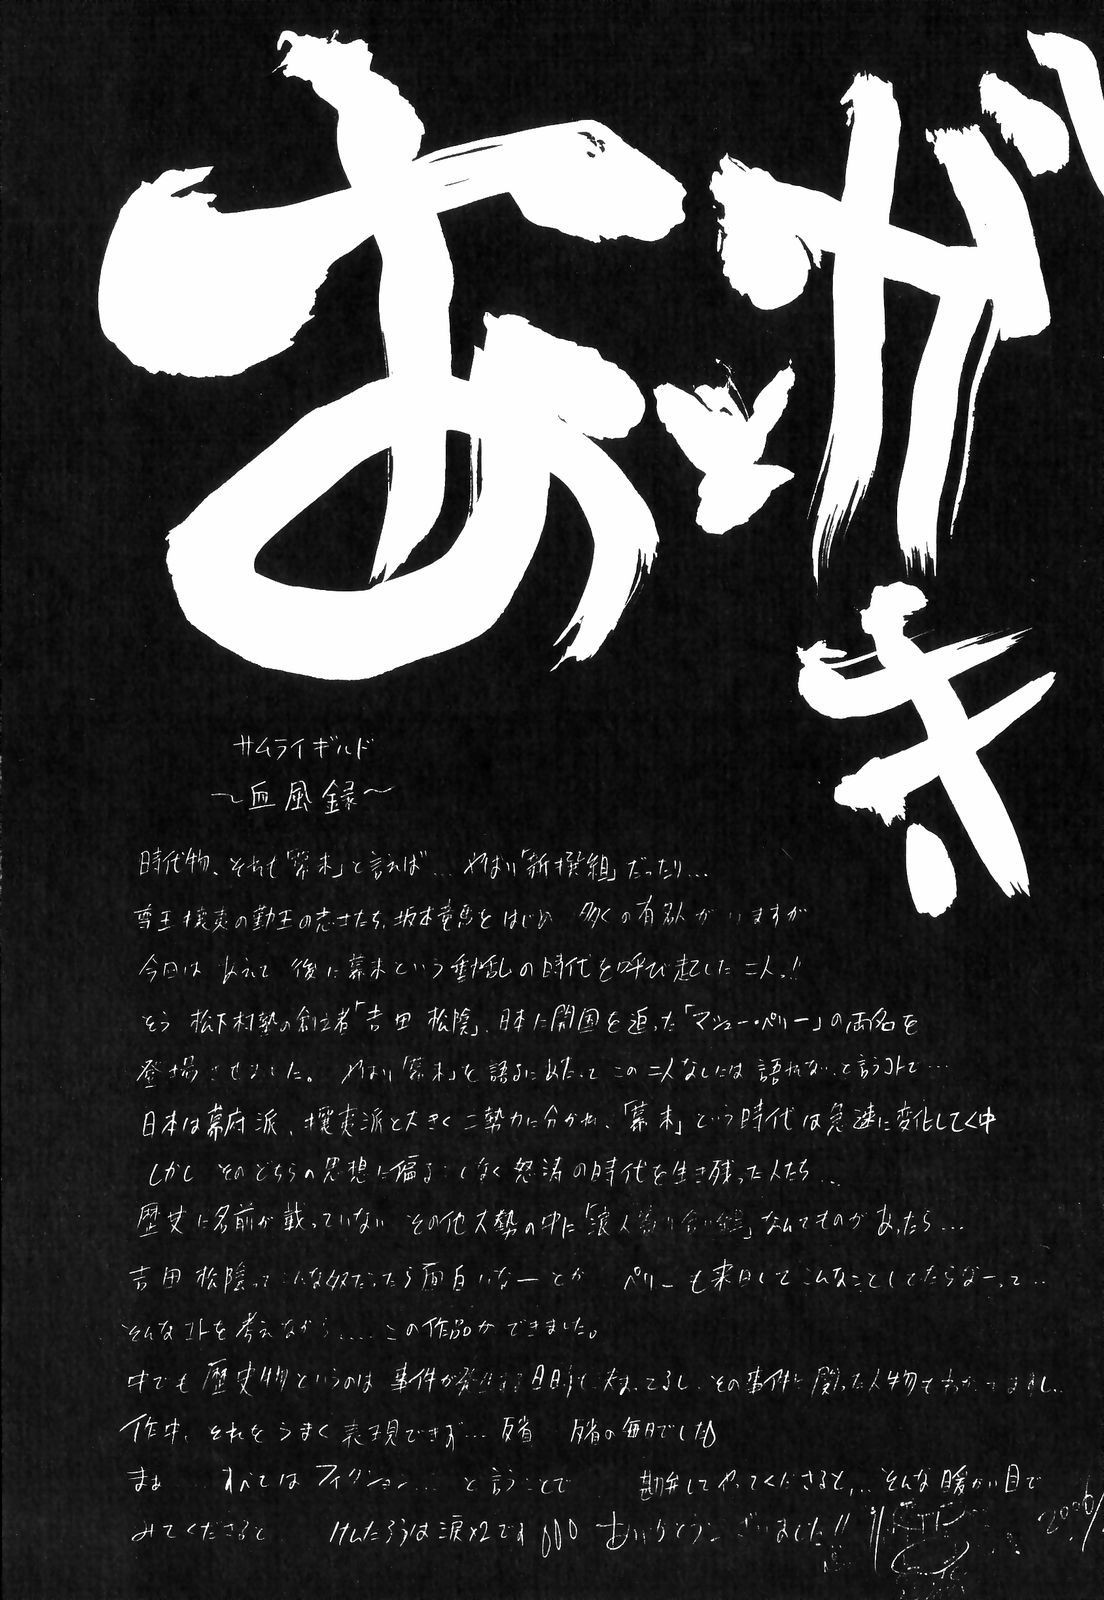 あとがき
サムライギルド
～血風録～
時代物、それも「幕末」と言えば… やはり「新撰組」だったり…
尊王攘夷の勤王の志士たち、坂本竜馬をはじめ 多くの有名人がいますが
今回は あえて 後に幕末という動乱の時代を呼び起した二人っ!!
そう 松下村塾の創立者「吉田 松陰」、日本に開国を迫った「マシュー・ペリー」の両名を
登場させました。 やはり「幕末」を語るにあたって この二人なしには 語れないっと言うコトで…
日本は幕府派、攘夷派と大きく二勢力に分かれ、「幕末」という時代は急速に変化してく中
しかし そのどちらの思想に偏ることなく 怒涛の時代を生き残った人たち…
歴史に名前が載っていない その他大勢の中に「浪人寄り合い組」なんてものがあったら…
吉田 松陰ってこんな奴だったら面白いなーとか ペリーも来日してこんなことしてたらなーって‥
そんなコトを考えながら…‥この作品ができました。
中でも 歴史物というのは 事件が発生する日時も決まってるし、その事件に関った人物もわかってますし、
作中、それをうまく表現できず… 反省 反省の毎日でした
まぁ… すべてはフィクション… と言うことで 勘弁してやってくださると… そんな暖かい目で
みてくださると けんたろうは涙×2です ありがとうございました!!